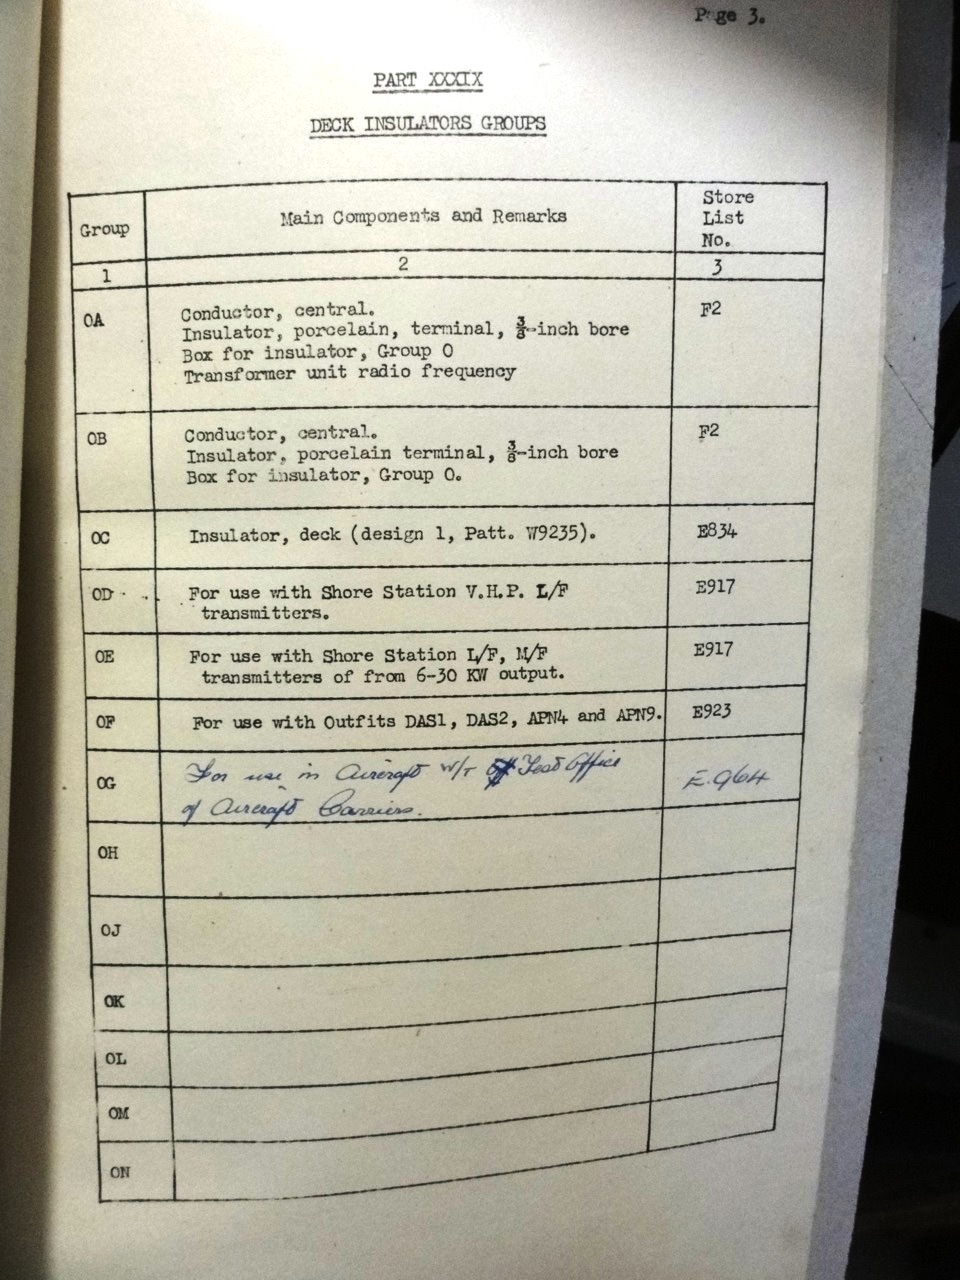 Page 3.
PART XXXIX
DECK INSULATORS GROUPS
Group
Main Components and Remarks
Store
List
No.
1
2
3
OA
Conductor, central.
F2
Insulator, porcelain, terminal, 3/8-inch bore
Box for insulator, Group O
Transformer unit radio frequency
OB
Conductor, central.
F2
Insulator, porcelain terminal, 3/8-inch bore
Box for insulator, Group O.
OC
Insulator, deck (design 1, Patt. W9235).
E834
OD
For use with Shore Station V.H.P. L/F
E917
transmitters.
OE
For use with Shore Station L/F, M/F
E917
transmitters of from 6-30 KW output.
OF
For use with Outfits DAS1, DAS2, APN4 and APN9.
E923
OG
For use in Aircraft W/T Test Office
E.964
of Aircraft Carriers.
OH
OJ
OK
OL
OM
ON